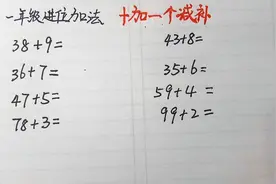 一年级进位加法 十加一个减补
38+9=
36+7=
47+5=
78+3=
43+8=
35+6=
59+4=
99+2=